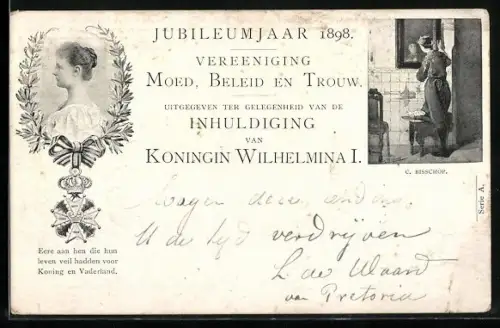 JUBILEUMJAAR 1898.
VEREENIGING
MOED, BELEID EN TROUW.
UITGEGEVEN TER GELEGENHEID VAN DE
INHULDIGING
VAN
KONINGIN WILHELMINA I.
C. BISSCHOP.
Serie A.
Eere aan hen die hun
leven veil hadden voor
Koning en Vaderland.
deze
U de tyd verdrijven
L de Waard
van Pretoria